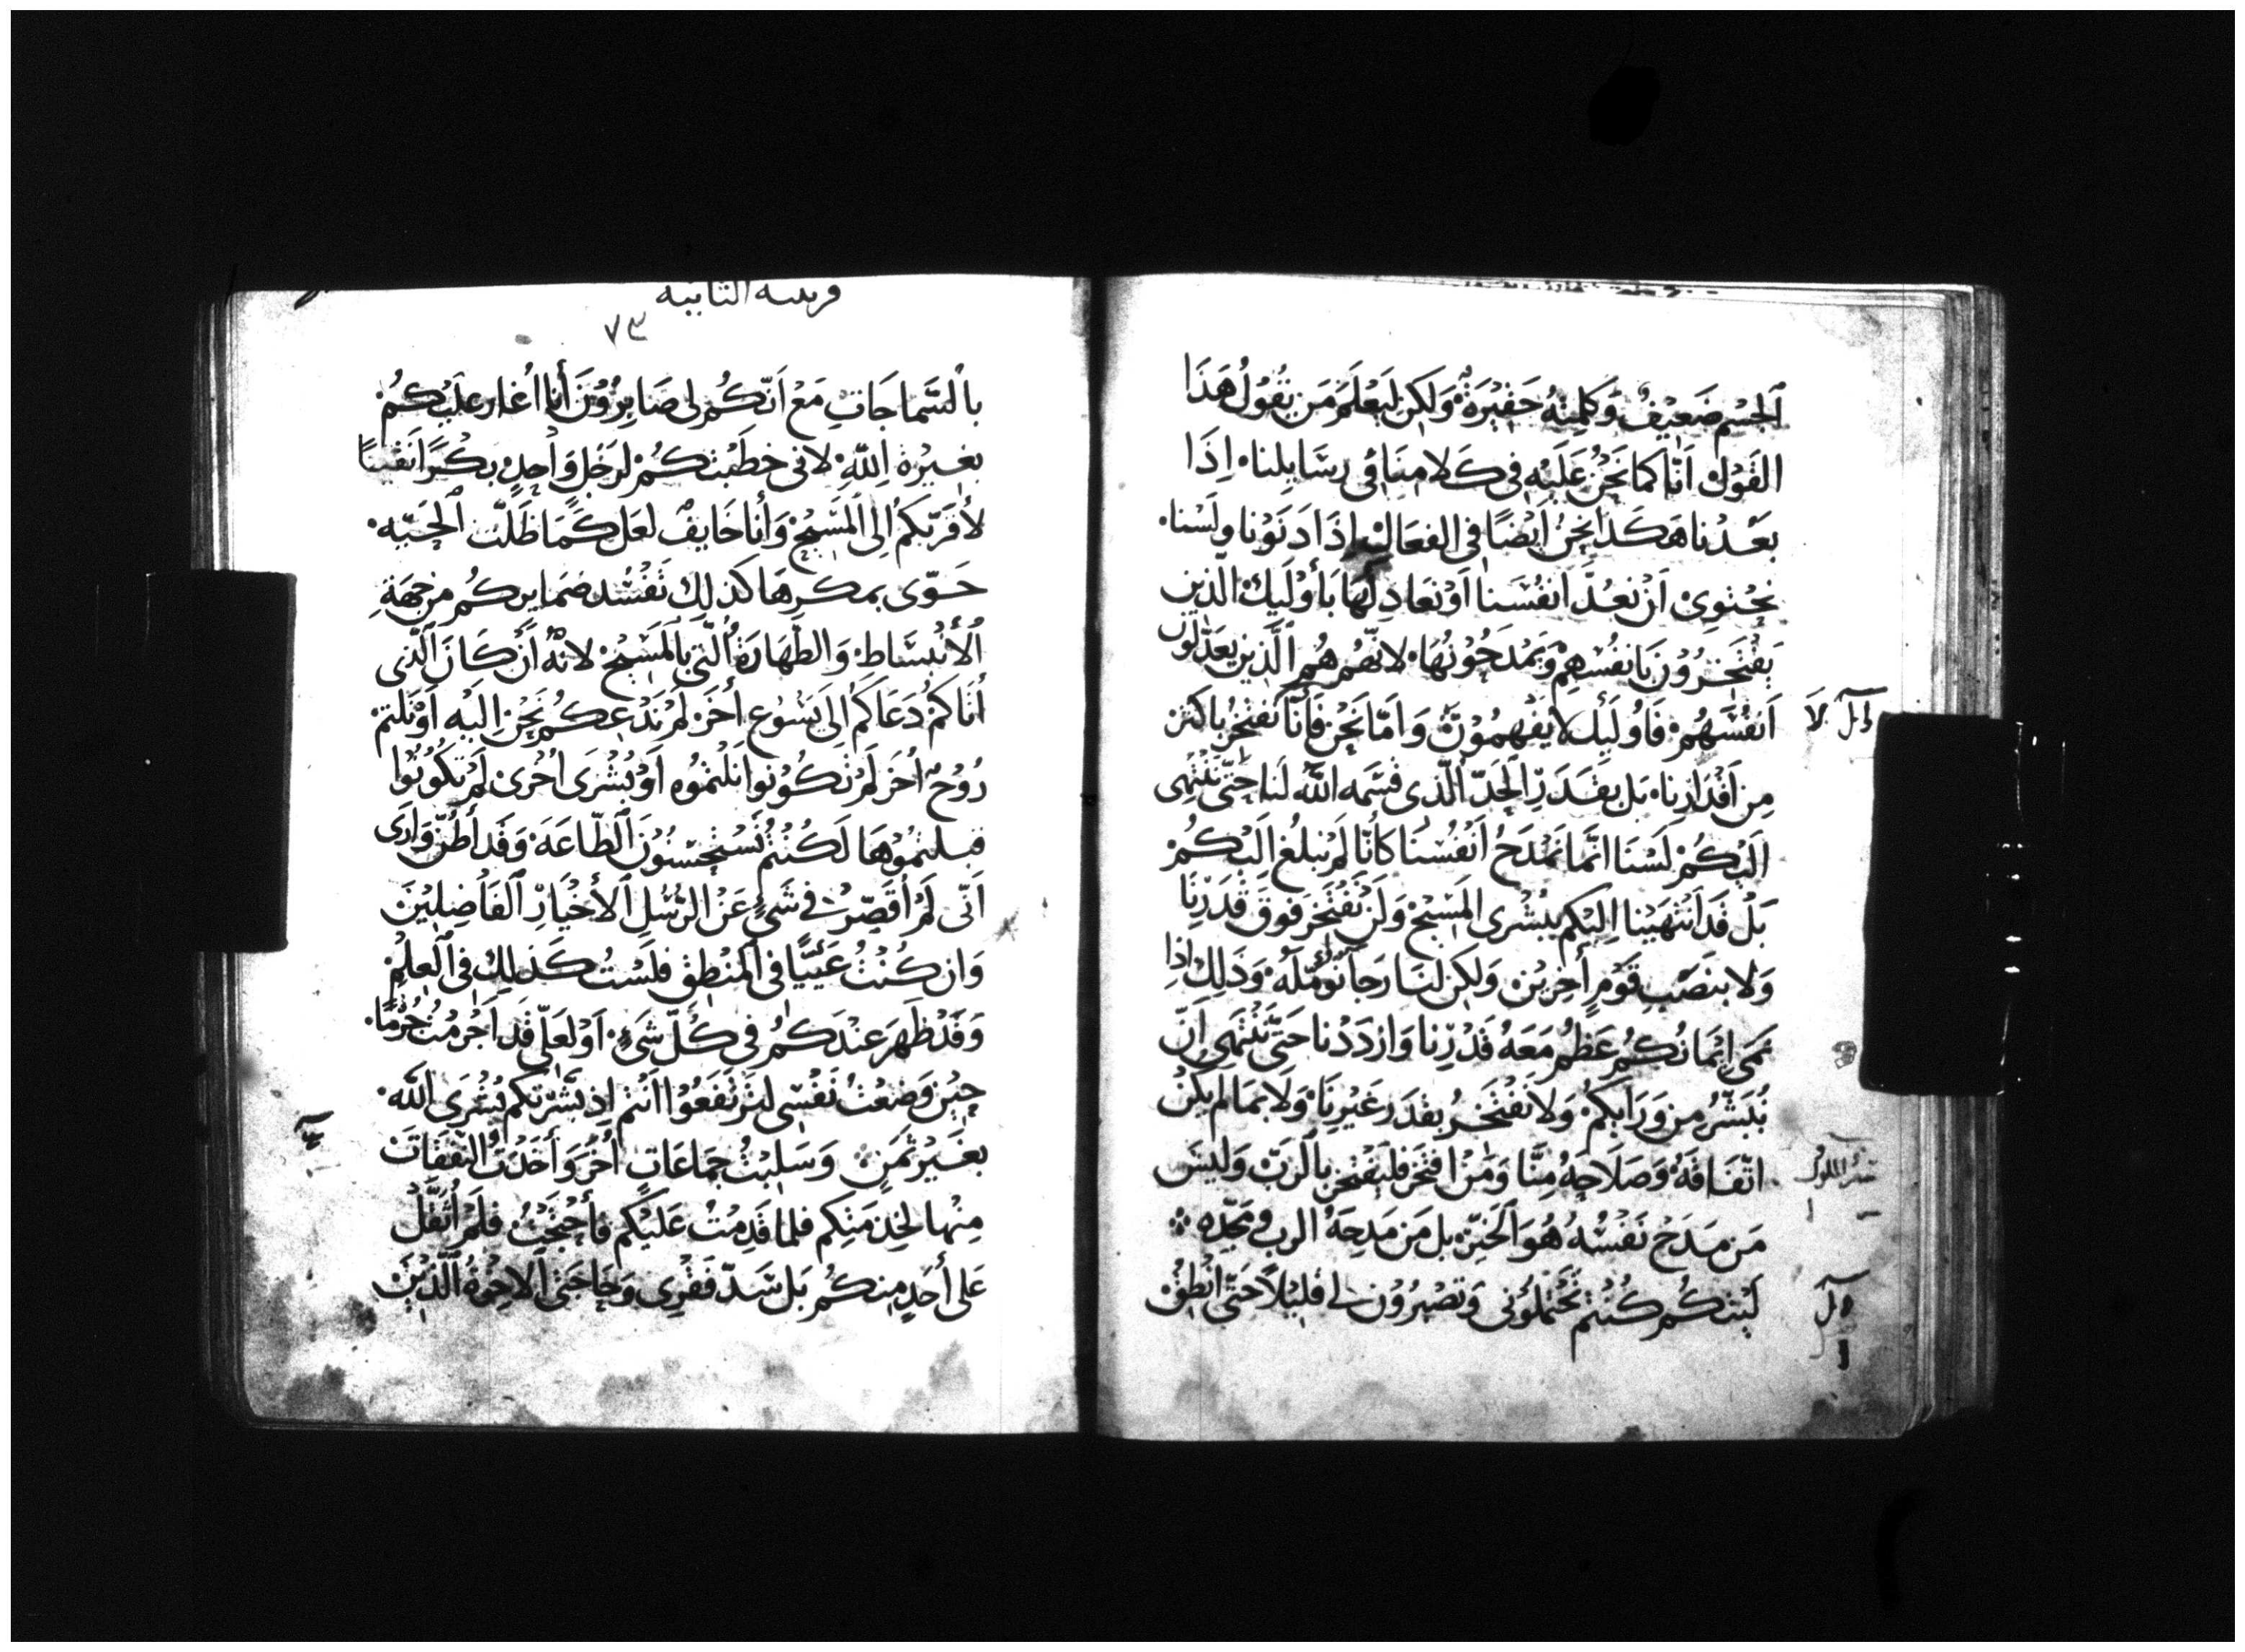 الجِسْم ضَعِيْفٌ وَكَلِمتهُ حَقِيْرَةٌ وَلَكِن ليَعْلَمَ مَن يقُولُ هَذَا
القَوْل اَنّا كَما نَحْنُ عَلَيْهِ في كَلامِنَا في رِسَايلِنا اِذَا
بَعَدْنا هَكَذا نحنُ اَيْضًا في الفعَال اِذَا دَنَوْنا ولَسْنا
نجْتوِي اَنْ نَعُدَّ انفُسَنا اَوْ نعَادِلَهَا بأوْلَيك الّذين
يفْتَخِرُوْنَ بَانفُسْهِمْ وَيَمْدَحُوْنهَا لانّهُم هُم الَّذِين يَعَدّلُون
اَنفُسَهُمْ فَاُولَيِك لايَفْهمُوْنَ وَاَمّا نَحْن فَأَنّا نَفْتَخِرُ باكثرَ
مِن اَقْدَارِنا بَل بِقَدَرِ الحَدّ الّذي قَسَّمه اللّٰه لنَا حَتّى نَنْتَهِى
اَلَيْكُمْ لَسْنَا انّمَا نَمْدَحُ اَنفُسَنا كَانّا لَمْ نبلُغ اَلَيْكُمْ
بَلْ قَدِ اَنْتهَيْنا اِليْكم ببُشْرى المَسِيْح وَلَنْ نَفْتَخِرَ فوقَ قَدَرِنَا
وَلا بنَصَبِ قَوْمٍ اُخرِيْن وَلكِن لنَا رَجَا نُوَمّلهُ وَذَلِكَ اِذا
نمَى اِيْمَانُكُم عَظُمَ مَعَهُ قَدْرنا وَازْدَدْنا حَتّى نَنْتَهِى اِنْ
نُبَشّرُ مِن وَرَايكُمْ وَلا نَفْتَخِرُ بقَدَرِ غَيْرِنَا وَلا بمَا لم يَكُنْ
اتّفَاقهُ وَصَلاحهُ مِنَّا وَمَن افْتَخَر فليَفْتخِر بِالرَبّ وَليسَ
مَن مَدَحَ نَفْسْهُ هُوَ الخَيّر بل مَن مَدحَهُ الرب ومجّده
لَيْتكُم كُنْتم تَحْتَملُوْني وَتَصْبِرُوْن لي قليْلًا حَتّى انْطِقْ
قرنتيه الثانيه
٧٣
بالسَّماجَاتِ مَعْ اَنّكُم لي صَابِرُوْنَ أَنا اُغار علَيْكُمْ
بغيْرة اِللهِ لاني خطَبْتكُمْ لرَجُلٍ وَاحِدٍ بكْرًا نقيّا
لأُقَرّبكُم اِلى المَسِيْحْ وَأنا خَايفٌ لعَل كَمَا ظَلّت اَلْحَيّه
حَوّى بمكْرِهَا كذلِكَ تَفْسُد ضمَايركُم مِن جهَةِ
اَلأَنْبِسَاطِ وَالطّهَارَةُ الّتي بالمَسِيْحْ لانّهُ أن كَانَ الّذي
أَتَاكُمْ دَعَاكُم الَى يَسُوْع أخَرْ لَمْ نَدْعكُم نَحْن اِليْه اَوْ نَلتمْ
رُوْحٌ اُخَر لَمْ تَكُوْنوا نلْتُمُوه اَوْ بُشْرَى اُخْرَى لَمْ تكُوْنُوا
قبلتمُوْهَا لَكُنْتُم تَسْتحْسِنُوْنَ الطّاعَةَ وَقَد أَظُنّ وَارَى
اَنّى لَمْ اُقَصّرْ في شَيءٍ عَنْ الرُسُلِ الأخْيَارِ الفَاضِلِيْنَ
وَان كُنْتُ عَيّيًّا في المَنْطِق فلَسْتُ كَذلِكَ في العِلْمِ
وَقَدْ ظَهَرَ عنْدَكُم في كُلّ شَيءٍ اَوْ لعَلّي قَد اَجْرَمْتُ جُرْمًا
حِيْن وَضعْتُ نَفْسِي لتَرْتَفعُوْا اَنتُم اِذ بَشّرْتكُم بُشْرَى اللّٰه
بغَيْر ثَمَنٍ وَسَلبْتُ جمَاعَاتٍ أُخَر وَأخَذتُ النّفَقَاتَ
مِنْها لخِدْمَتِكم فلما قَدِمْتُ عَليْكم فأحْتجْتُ فلَم اُثَقّلْ
عَلى أحَدٍ مِنكُم بَل سَدّ فَقْرِي وَحَاجَتي الاخْوَةُ الّذِيْنَ